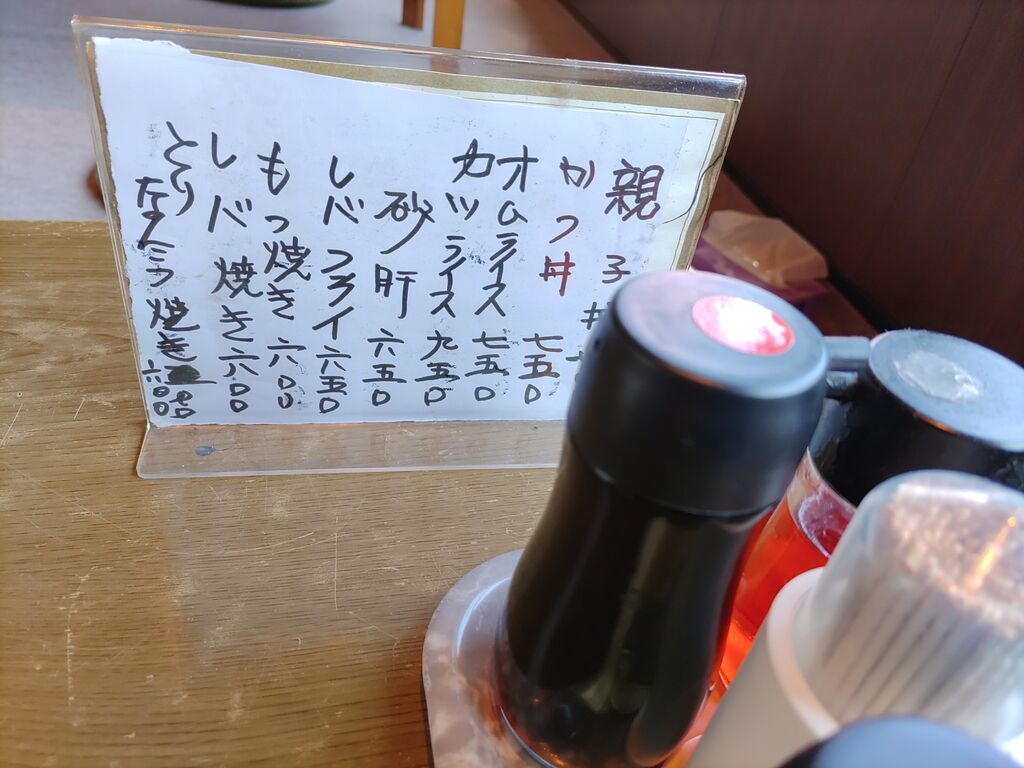 親子丼
かつ丼 七五〇
オムライス 七五〇
カツライス 九五〇
砂肝 六五〇
レバフライ 六五〇
もつ焼き 六〇〇
レバ焼き 六〇〇
とり 焼き 六〇〇